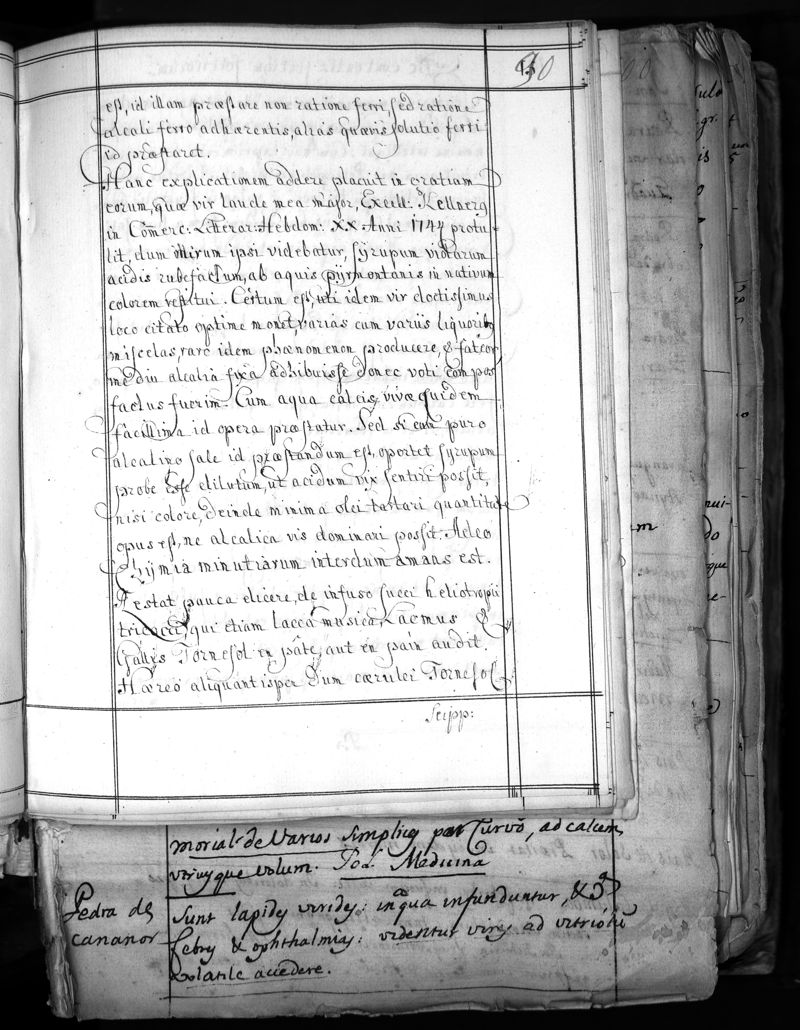 90
est, id illam præstare non ratione ferri, sed ratione
alcali ferro adhærentis, alias quævis solutio ferri
id præstaret.
Hanc explicationem addere placuit in gratiam
eorum, quæ vir laude mea major, Excell: Kellnerg
in Com̄erc: Litteror: Hebdom: XX Anni 1747 protu-
lit, dum mirum ipsi videbatur, syrupum violarum
acidis rubefactum, ab aquis pyrmontanis in nativum
colorem restitui. Certum est, uti idem vir doctissimus
loco citato optime monet, varias cum variis liquoribg
miscelas, raro idem phœnomenon producere, & fateor,
me diu alcalia fixa adhibuisse donec voti compos
factus fuerim. Cum aqua calcis vivæ quidem
facillima id opera præstatur. Sed si cum puro
alcalino sale id præstandum est, oportet syrupum
probe esse dilutum, ut acidum vix sentiri possit,
nisi colore, deinde minima olei tartari quantitate
opus est, ne alcalica vis dominari possit. Adeo
Chymia minutiarum interdum amans est.
Restat pauca dicere, de infuso succi heliotropii
tricocci, qui etiam lacca musica, Lacmus &
Gallis Tornesol en pâte, aut en pain audit.
Hæreo aliquantisper dum cærulei Tornesol
Scipp:
morial de Varios simplicg por Curvo, ad calcem
utriusque volum. Pol. Medicina
Pedra de
cananor
Sunt lapidg viridg: in qua infunduntur, &
febrg & ophthalmiag: videntur virg ad vitrioli
volatile accedere.